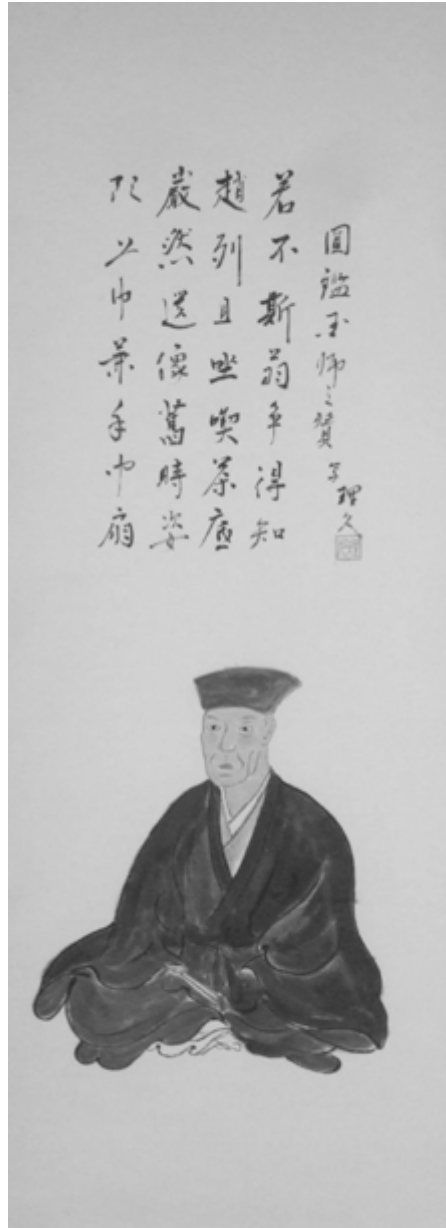 頂上巾兮手中扇
嚴然遺像舊時姿
趙州且坐喫茶底
若不斯翁争得知
圓鑑国師之賛 理久